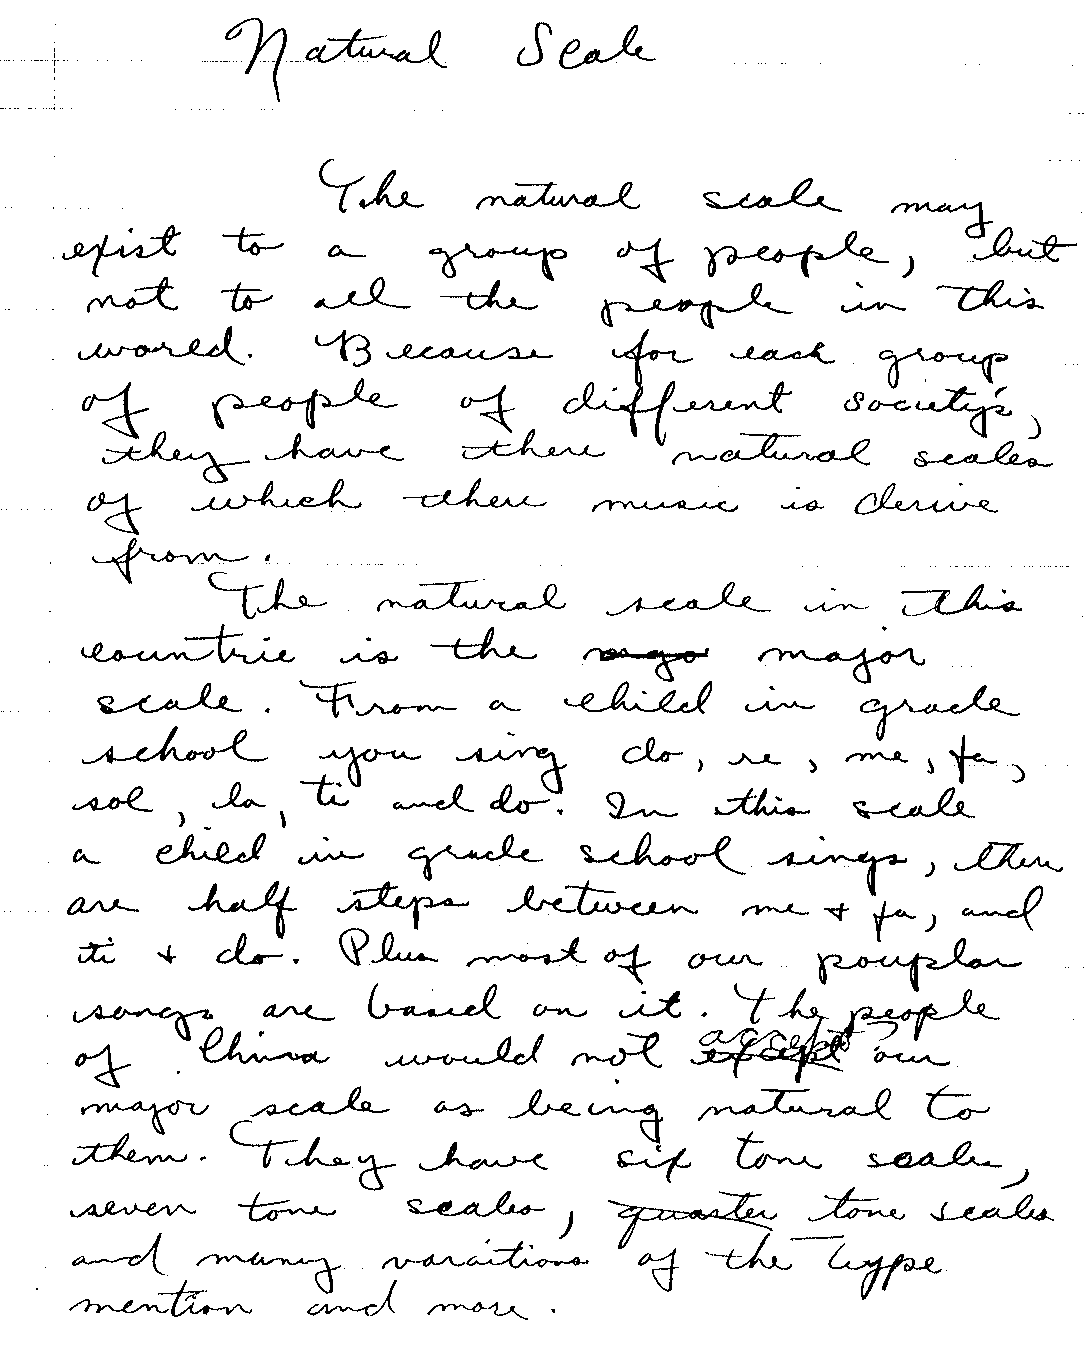 Natural Scale
The natural scale may
exist to a group of people, but
not to all the people in this
world. Because for each group
of people of different society's,
they have there natural scales
of which there music is derive
from.
The natural scale in this
countrie is the major
scale. From a child in grade
school you sing do, re, me, fa,
sol, la, ti and do. In this scale
a child in grade school sings, there
are half steps between me + fa, and
ti + do. Plus most of our pouplar
songs are based on it. The people
of China would not accept our
major scale as being natural to
them. They have six tone scales,
seven tone scales, quarter tone scales
and many varaitions of the type
mention and more.